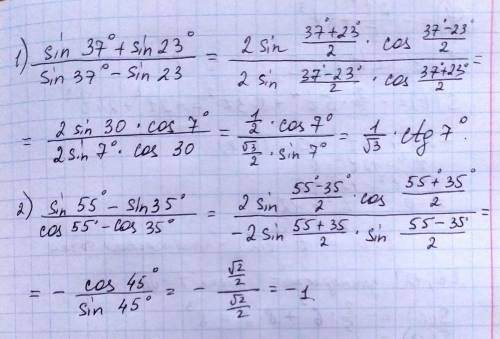 1) (sin 37° + sin 23°) / (sin 37° − sin 23) = (2 sin (37°+23°)/2 · cos (37°−23°)/2) / (2 sin (37°−23°)/2 · cos (37°+23°)/2) =
= (2 sin 30 · cos 7°) / (2 sin 7° · cos 30) = (1/2 · cos 7°) / (√3/2 · sin 7°) = 1/√3 · ctg 7°.
2) (sin 55° − sin 35°) / (cos 55° − cos 35°) = (2 sin (55°−35°)/2 · cos (55+35°)/2) / (−2 sin (55+35)/2 · sin (55−35°)/2) =
= − cos 45° / sin 45° = − (√2/2) / (√2/2) = −1